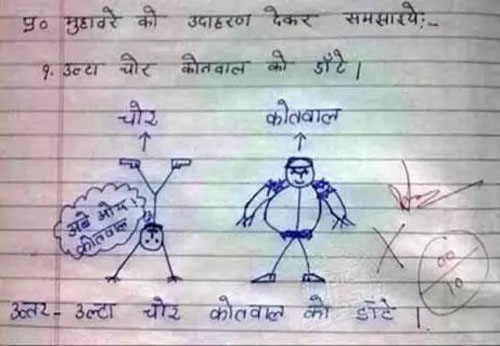 प्र० मुहावरे को उदाहरण देकर समझाइये:-
१. उल्टा चोर कोतवाल को डाँटे।
चोर
कोतवाल
अबे ओए!
कोतवाल
00
10
उत्तर- उल्टा चोर कोतवाल को डाँटे।